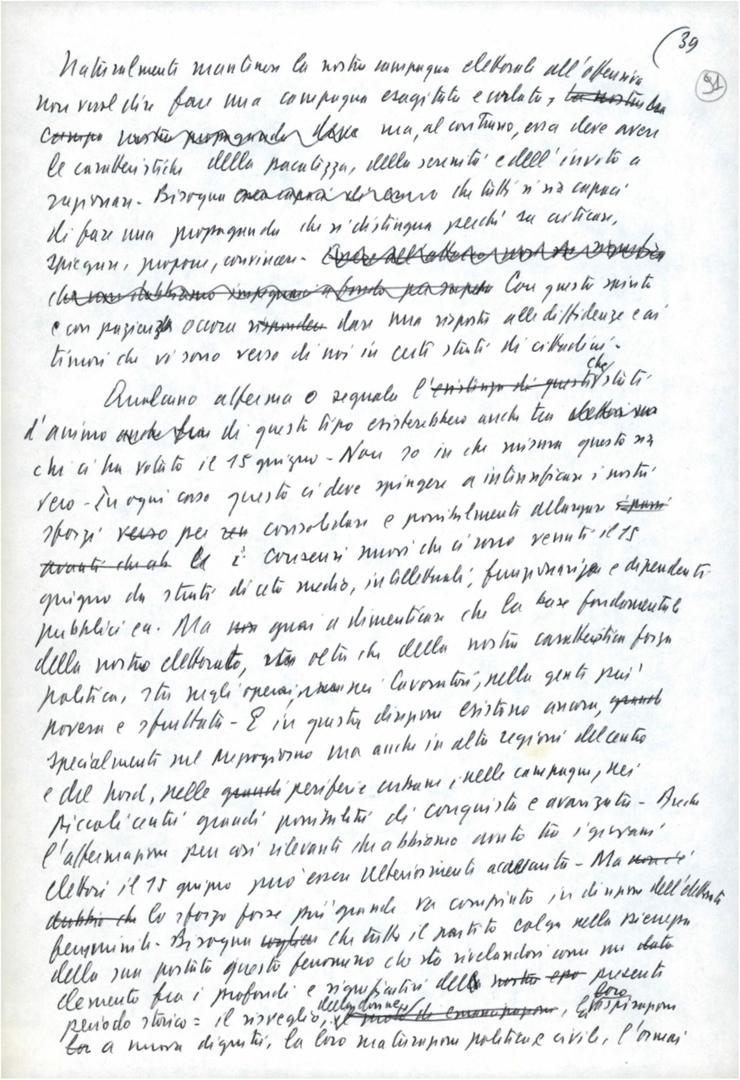 (39
91
Naturalmente mantenere la nostra campagna elettorale all'offensiva
non vuol dire fare una campagna esagitata e urlata, la nostra
campa nostra propaganda deve ma, al contrario, essa deve avere
le caratteristiche della pacatezza, della serenità e dell'invito a
ragionare. Bisogna che tutti si sia capaci
di fare una propaganda che si distingua perché sa criticare,
spiegare, proporre, convincere.
che non dobbiamo impegnarci a fondo per Con questo spirito
e con pazienza occorre rispondere dare una risposta alle diffidenze e ai
timori che vi sono verso di noi in certi strati di cittadini.
Qualcuno afferma o segnala l'esistenza di questi che stati
d'animo anche fra di questo tipo esisterebbero anche tra
chi ci ha votato il 15 giugno. Non so in che misura questo sia
vero. In ogni caso questo ci deve spingere a intensificare i nostri
sforzi verso per consolidare e possibilmente allargare
avanti che i consensi nuovi che ci sono venuti il 15
giugno da strati di ceto medio, intellettuali, funzionari e dipendenti
pubblici ecc. Ma non guai a dimenticare che la base fondamentale
della nostro elettorato, oltre che della nostra caratteristica forza
politica, sta negli operai, nei lavoratori, nella gente più
povera e sfruttata. E in questa direzione esistono ancora, grandi
specialmente nel Mezzogiorno ma anche in altre regioni del centro
e del Nord, nelle grandi periferie urbane, nelle campagne, nei
piccoli centri grandi possibilità di conquista e avanzata. Anche
l'affermazione pur così rilevante che abbiamo avuto tra i giovani
elettori il 15 giugno può essere ulteriormente accresciuta. Ma non c'è
dubbio che lo sforzo forse più grande va compiuto in direzione dell'elettorato
femminile. Bisogna che tutto il partito colga nella pienezza
della sua portata questo fenomeno che sta rivelandosi come un dato
elemento fra i profondi e significativi del nostro presente
periodo storico: il risveglio delle donne, di emancipazione, la loro aspirazione
a nuova dignità, la loro maturazione politica e civile, l'ormai